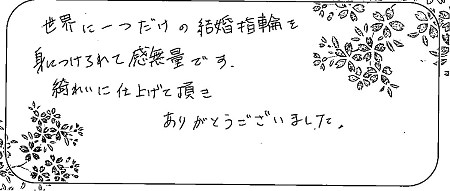 世界に一つだけの結婚指輪を
身につけられて感無量です.
綺れいに仕上げて頂き
ありがとうございました。